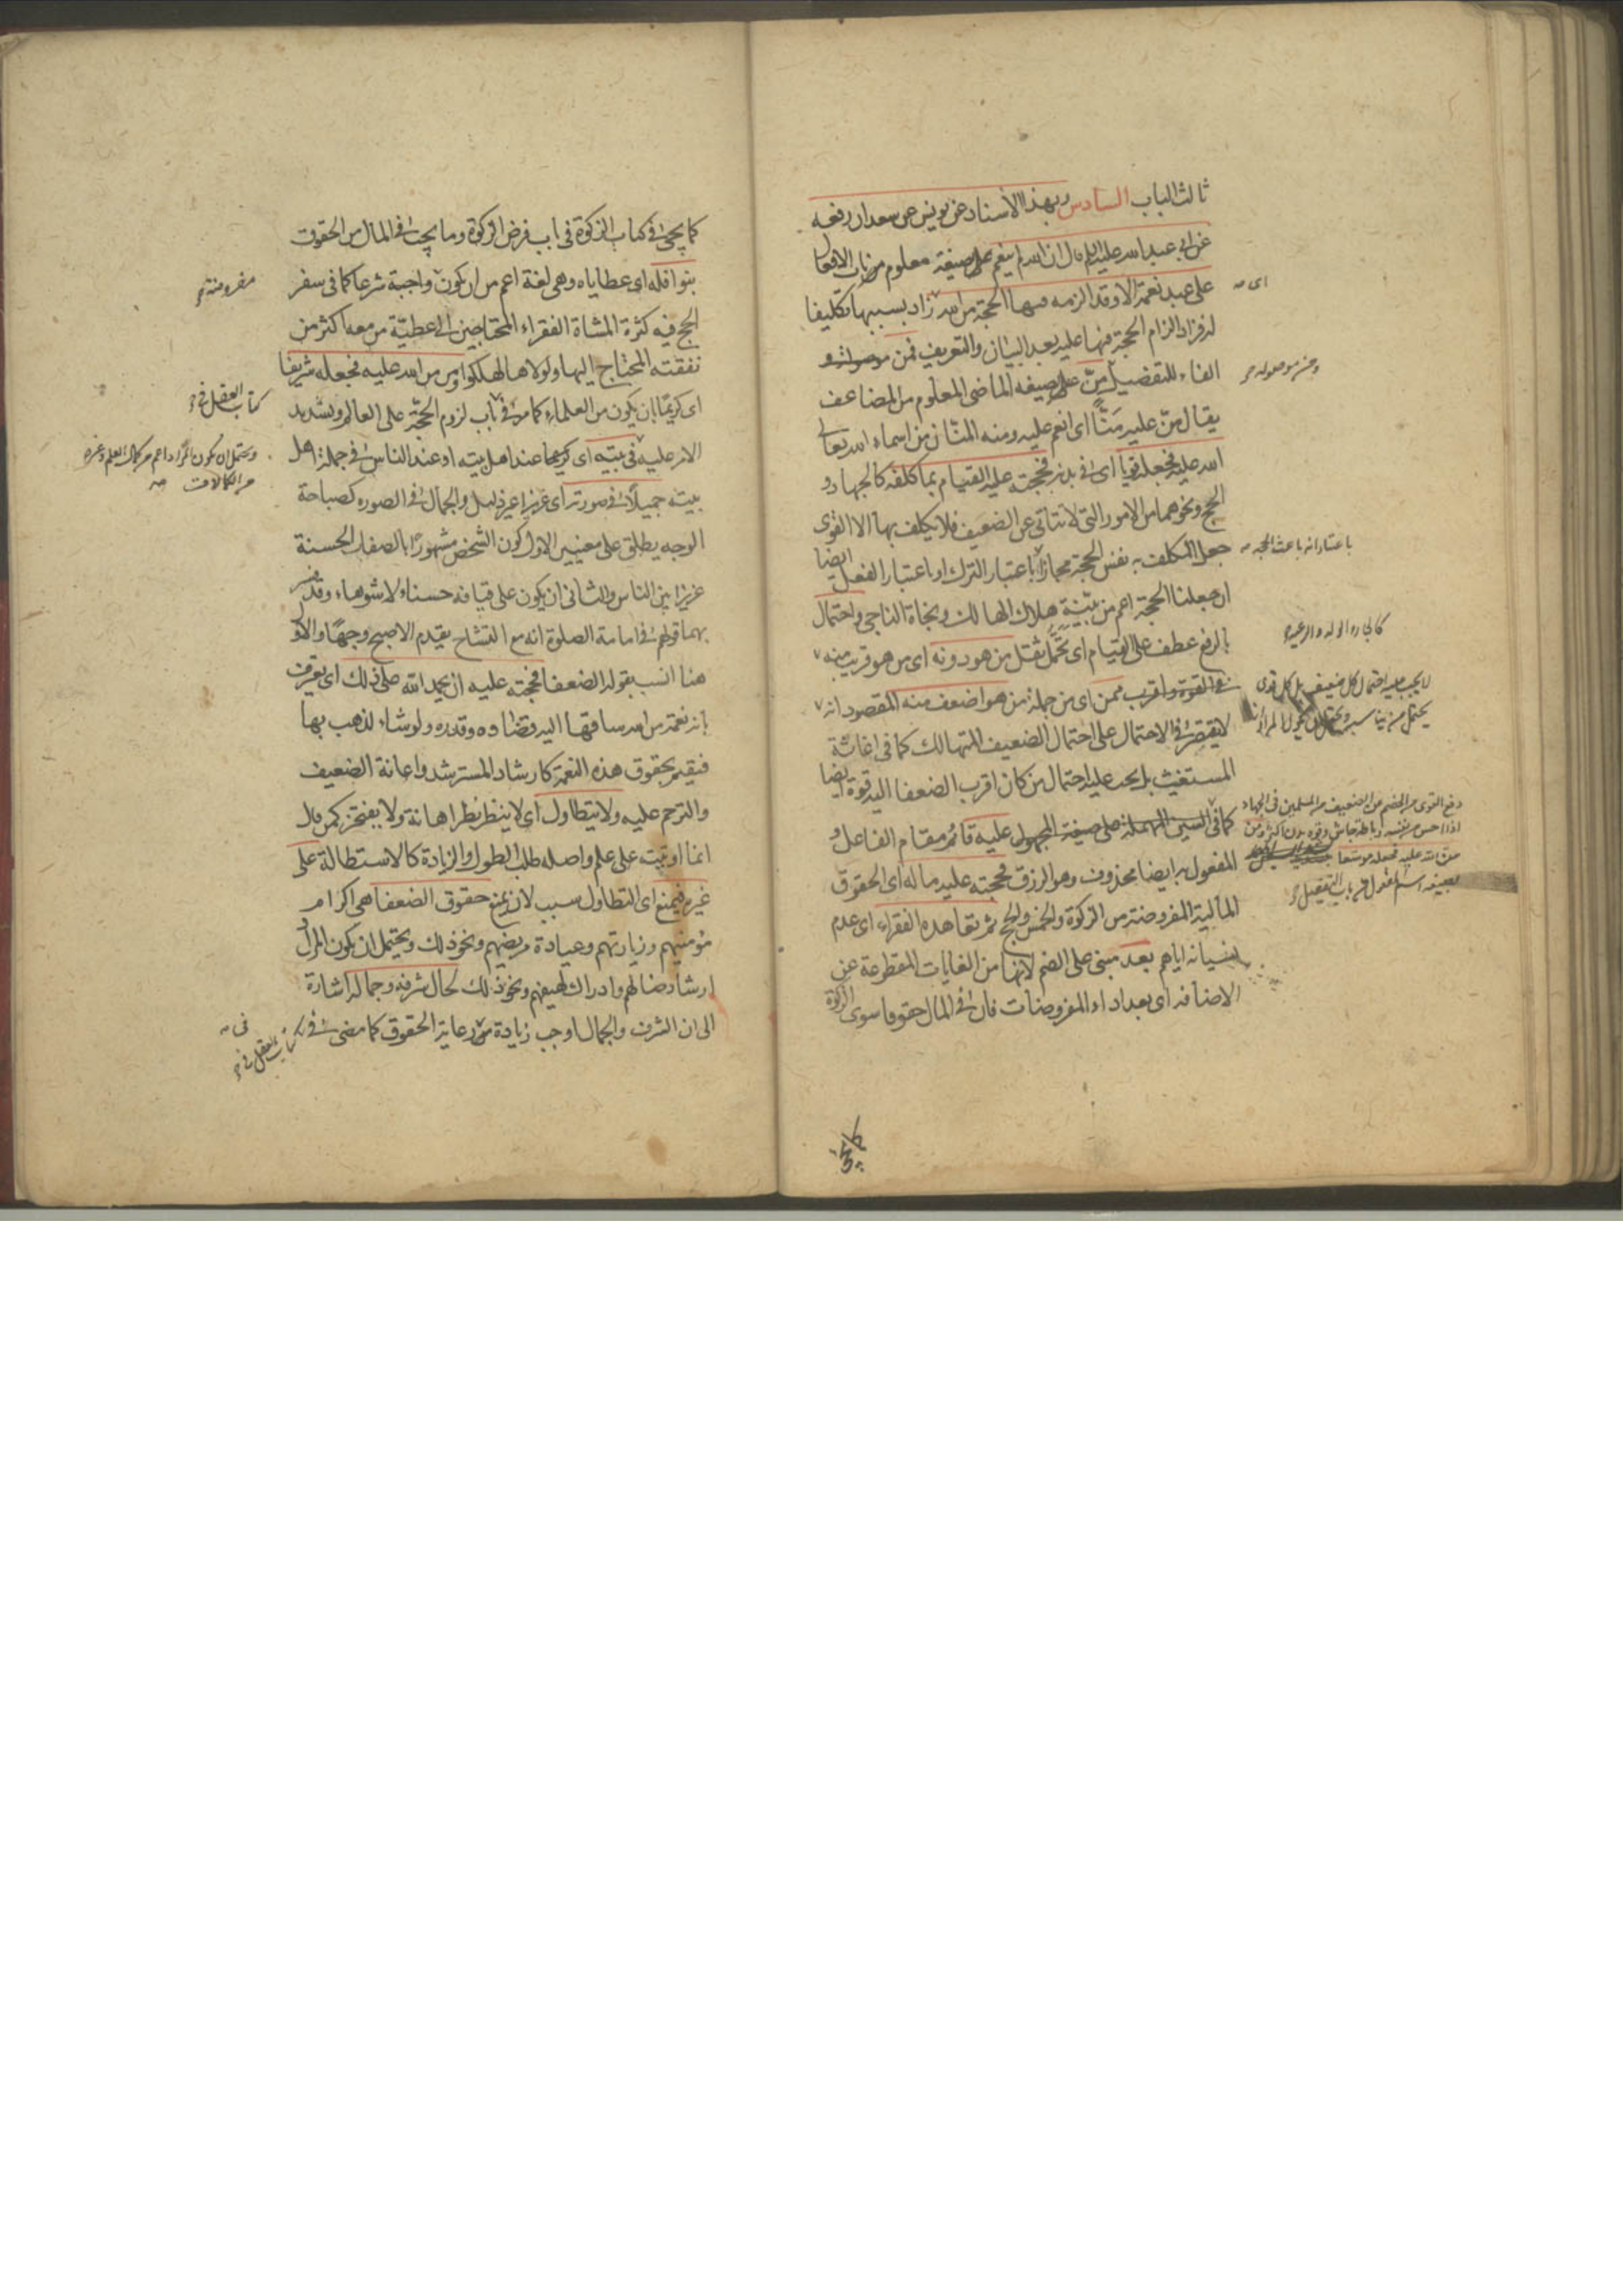 ثالث الباب السادس وبهذا الاسناد عن يونس عن سعدان رفعه
عن ابى عبد الله عليه السلام قال ان الله لم ينعم على صيغة معلوم من باب الافعال
على عبد نعمة الا وقد الزمه فيها الحجة من الله زاد بسببها تكليفا
له فزاد الزام الحجة فيها عليه بعد البيان والتعريف فمن
الفاء للتفصيل منّ على صيغه الماضى المعلوم من المضاعف
يقال منّ عليه مَنّاً اى انعم عليه ومنه المنّان من اسماء الله تعالى
الله عليه فجعله قويا اى فى بدنه فحجته عليه القيام بما كلفه كالجهاد و
الحج ونحوهما من الامور التى لا تتاتى عن الضعيف فلا يكلف بها الا القوى
جعل المكلف به نفس الحجة مجازا باعتبار الترك او باعتبار الفعل ايضا
ان جعلنا الحجة اعم من بيّنة هلاك الهالك ونجاة الناجى واحتمال
بالرفع عطف على القيام اى تحمّل ثقل من هو دونه اى من هو قريب منه
فى القوة واقرب ممن اى من جملة من هو اضعف منه المقصود انه
لا يقتصر فى الاحتمال على احتمال الضعيف المتهالك كما فى اغاثة
المستغيث بل يجب عليه احتمال من كان اقرب الضعفا اليه قوة ايضا
كما فى السين المهملة على صيغة المجهول عليه قائم مقام الفاعل و
المفعول به ايضا محذوف وهو الرزق فحجته عليه ماله اى الحقوق
المالية المفروضة من الزكوة والخمس والحج ثم تعاهده الفقراء اى عدم
نسيانه اياهم بعد مبنى على الضم لانها من الغايات المقطوعة عن
الاضافه اى بعد اداء المفروضات فان فى المال حقوقا سوى الزكوة
اى
ومن موصوله
باعتبار انه باعث الحجة
لا يجب عليه احتمال كل ضعيف بل كل قوى
دفع القوى من الخصم من الضعيف من المسلمين فى الجهاد
منّ الله عليه فجعله موسعا
بصيغه اسم المفعول من باب التفعيل
كما يجئ فى كتاب الزكوة فى باب فرض الزكوة وما يجب فى المال من الحقوق
بنوافله اى عطاياه وهى لغة اعم من ان يكون واجبة شرعا كما فى سفر
الحج فيه كثرة المشاة الفقراء المحتاجين الى عطيّة من معه اكثر من
نفقته المحتاج اليها ولولاها لهلكوا ومن من الله عليه فجعله شريفا
اى كريمًا بان يكون من العلماء كما مرّ فى باب لزوم الحجّة على العالم وتشديد
الامر عليه فى بيته اى كريما عند اهل بيته او عند الناس فى جملة اهل
بيته جميلًا فى صورته اى عزيزا غير ذليل والجمال فى الصورة كصباحة
الوجه يطلق على معنيين الاول كون الشخص مشهورًا بالصفات الحسنة
عزيزا بين الناس والثانى ان يكون على قيافة حسناء لا شوهاء وقد فسر
بهما قولهم فى امامة الصلوة انه مع التشاح يقدم الاصبح وجهًا والاول
هنا انسب بقوله الضعفا فحجته عليه ان يحمد الله على ذلك اى يعرف
انه نعمة من الله ساقها اليه بقضاءه وقدره ولو شاء لذهب بها
فيقيم بحقوق هذه النعمة كارشاد المسترشد واعانة الضعيف
والترحم عليه ولا يتطاول اى لا ينظر نظر اهانة ولا يفتخر كمن قال
انما اوتيت على علم واصله طلب الطول والزيادة كالاستطالة على
غيره فيمنع اى التطاول سبب لان يمنع حقوق الضعفا هى اكرام
مؤمنيهم وزيارتهم وعيادة مريضهم ونحو ذلك ويحتمل ان يكون المراد
ارشاد ضالهم وادراك لهيفهم ونحو ذلك لحال شرفه وجماله اشارة
الى ان الشرف والجمال اوجب زيادة من رعاية الحقوق كما مضى فى
مفروضة
كتاب العقل فى
ويحتمل ان يكون المراد اعم من كمال العلم وغيره
من الكمالات